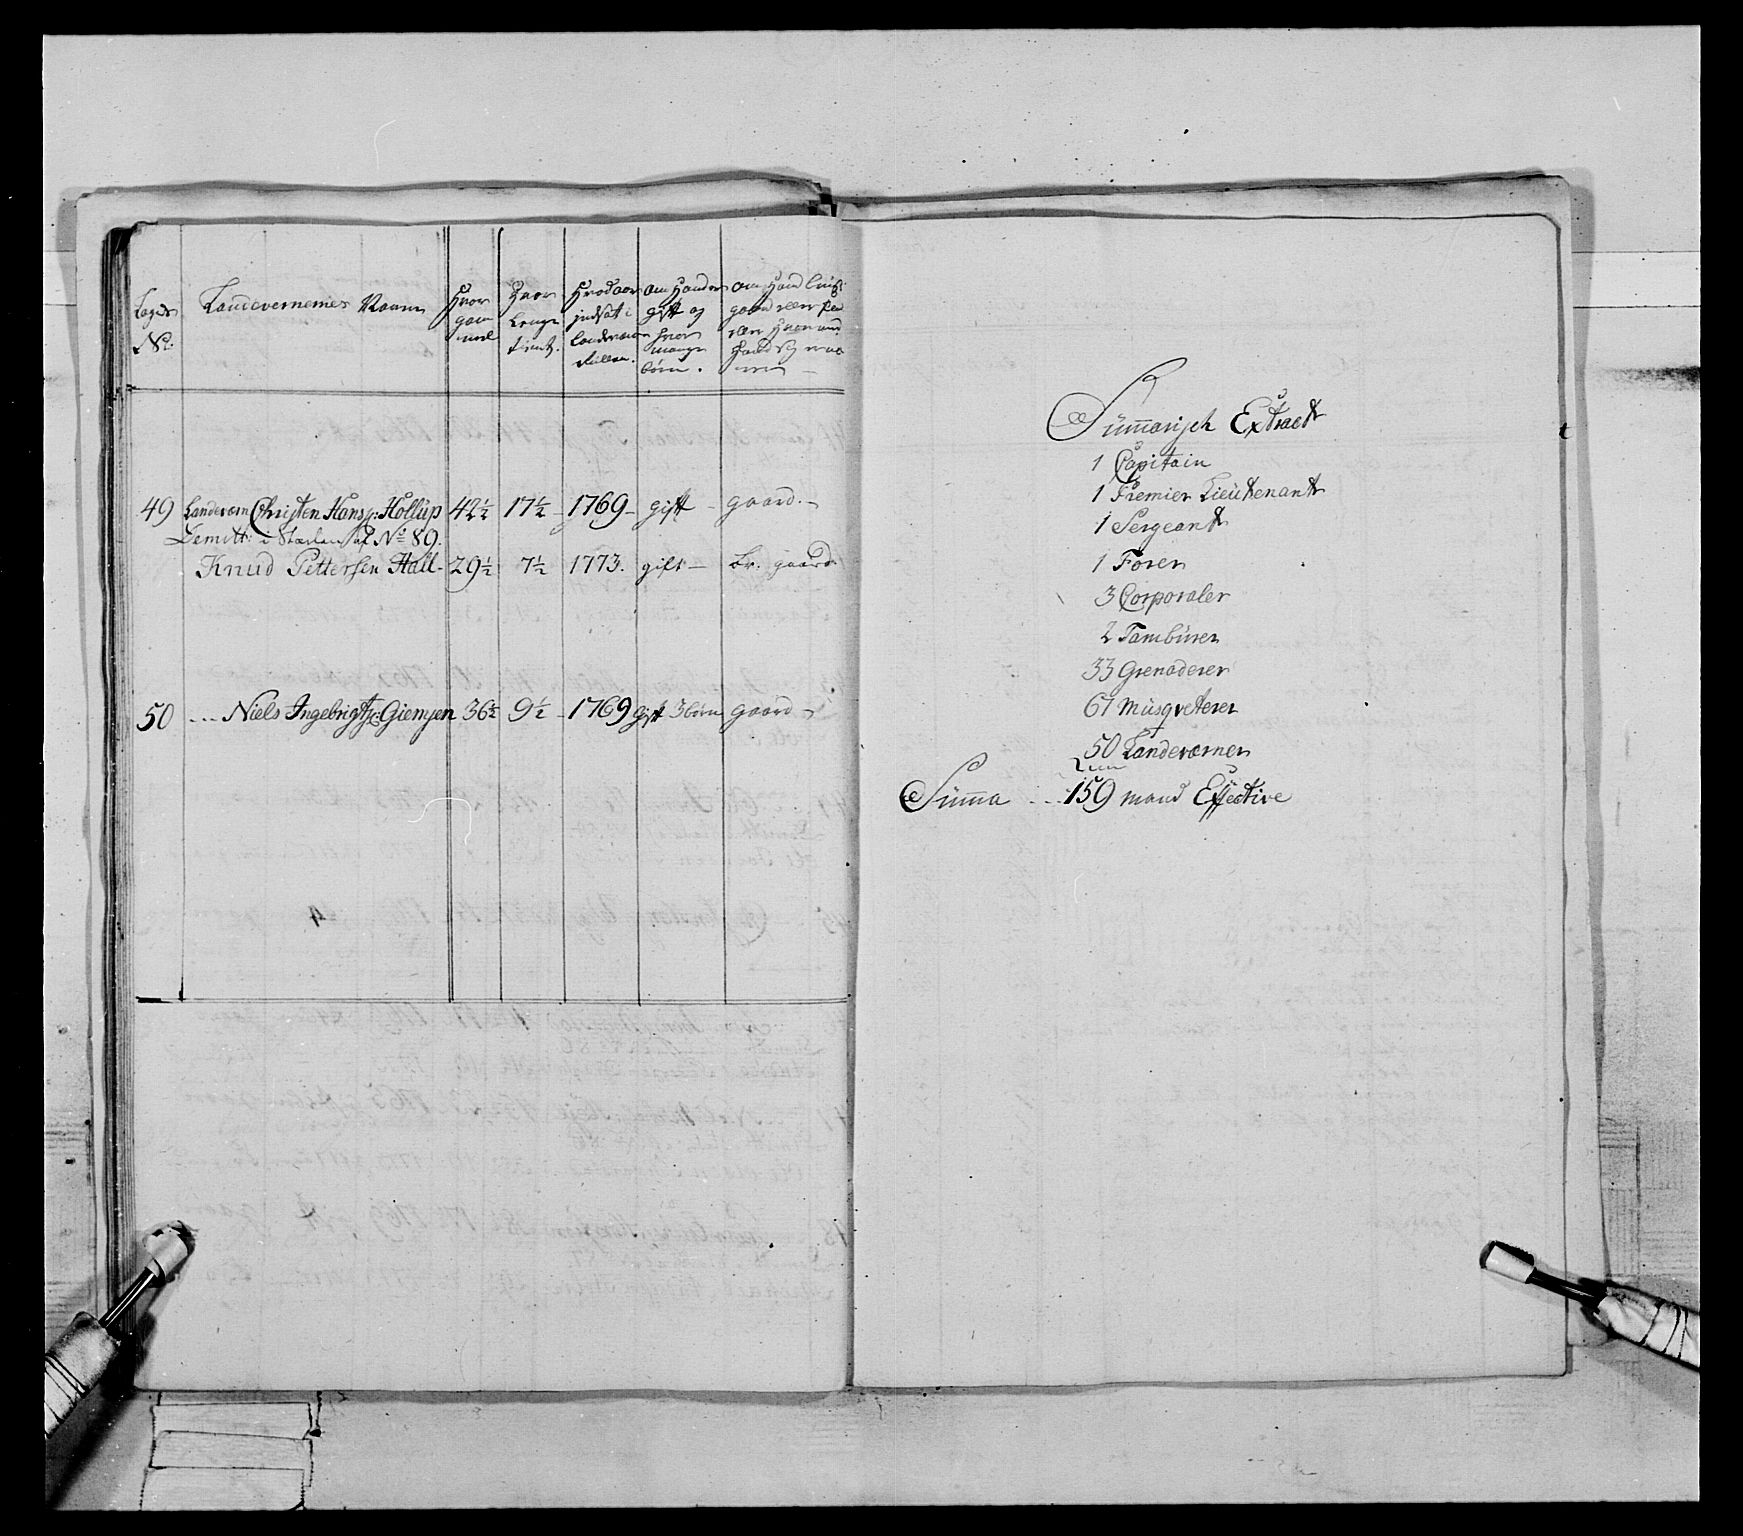 Lægds No:
Landeværnernes Naune
Hvor gam mel
Hvor Lenge tient.
Hvad aar indsat i landeværns Rullen.
om Hand er gift og hvor mange børn.
om Hand brug: gaard eller
49 Landeværn Christen Hans: Hollup 42½ 17½ 1769 gift gaard.
Demitt: i Stæden af No 89.
Knud Pettersen Hall 29½ 7½ 1773. gift br. gaard
50 Niels Ingebrigts: Giemsen 36½ 9½ 1769 gift 3 børn gaard
Summarisch Extract
1 Capitain
1 Premier Lieutenant
1 Sergeant
1 Forer
3 Corporaler
2 Tamburer
33 Grenaderer
67 Musqveterer
50 Landeværner
Summa 159 mand Effective